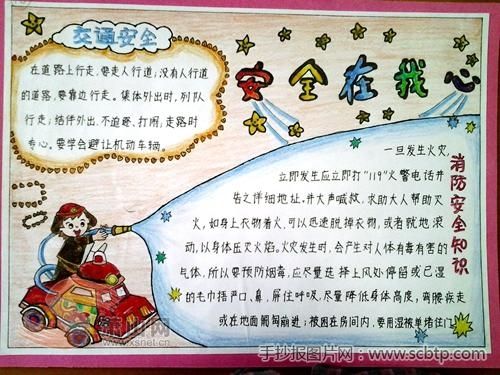 交通安全
在道路上行走，要走人行道；没有人行道
的道路，要靠边行走。集体外出时，列队
行走；结伴外出，不追逐、打闹，走路时
专心。要学会避让机动车辆。
安全在我心
消防安全知识
一旦发生火灾，
立即发生应立即打"119"火警电话并
告之详细地址。并大声喊救，求助大人帮助灭
火，如身上衣物着火，可以迅速脱掉衣物，或者就地滚
动，以身体压灭火焰。火灾发生时，会产生对人体有毒有害的
气体，所以要预防烟毒，应尽量选择上风处停留或已湿
的毛巾捂严口、鼻，屏住呼吸，尽量降低身体高度，弯腰疾走
或在地面匍匐前进；被困在房间内，要用湿被单堵住门
www.xsnet.cn
手抄报图片网：www.scbtp.com